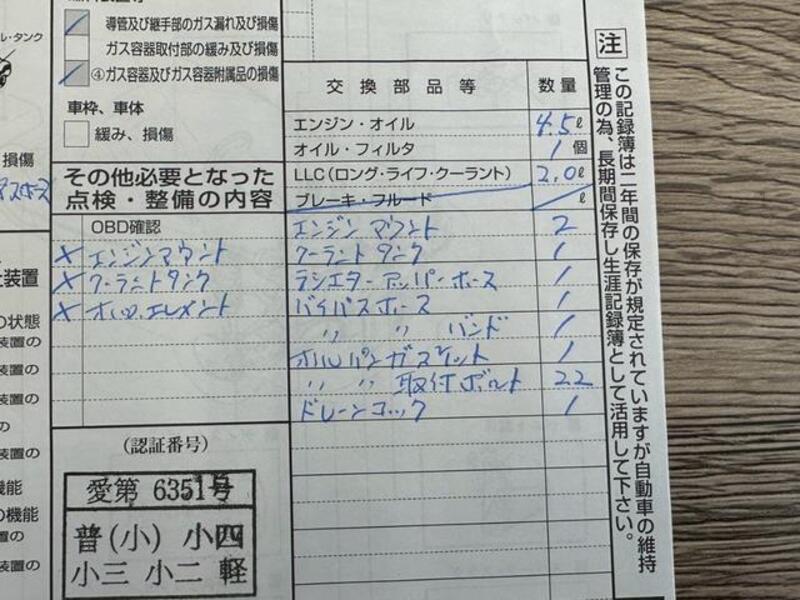 導管及び継手部のガス漏れ及び損傷
ガス容器取付部の緩み及び損傷
④ガス容器及びガス容器附属品の損傷
車枠、車体
緩み、損傷
その他必要となった
点検・整備の内容
OBD確認
× エンジンマウント
× クーラントタンク
× オイル.エレメント
(認証番号)
愛第 6351号
普(小) 小四
小三 小二 軽
交換部品等 数量
エンジン・オイル 4.5ℓ
オイル・フィルタ 1個
LLC(ロング・ライフ・クーラント) 2.0ℓ
ブレーキ・フルード ℓ
エンジンマウント 2
クーラントタンク 1
ラジエターアッパーホース 1
バイパスホース 1
〃 〃 バンド 1
オイルパンガスケット 1
〃 〃 取付ボルト 22
ドレーンコック 1
注
この記録簿は二年間の保存が規定されていますが自動車の維持
管理の為、長期間保存し生涯記録簿として活用して下さい。
ル・タンク
損傷
装置
の状態
装置の
装置の
装置の
の
装置の
機能
の機能
装置の